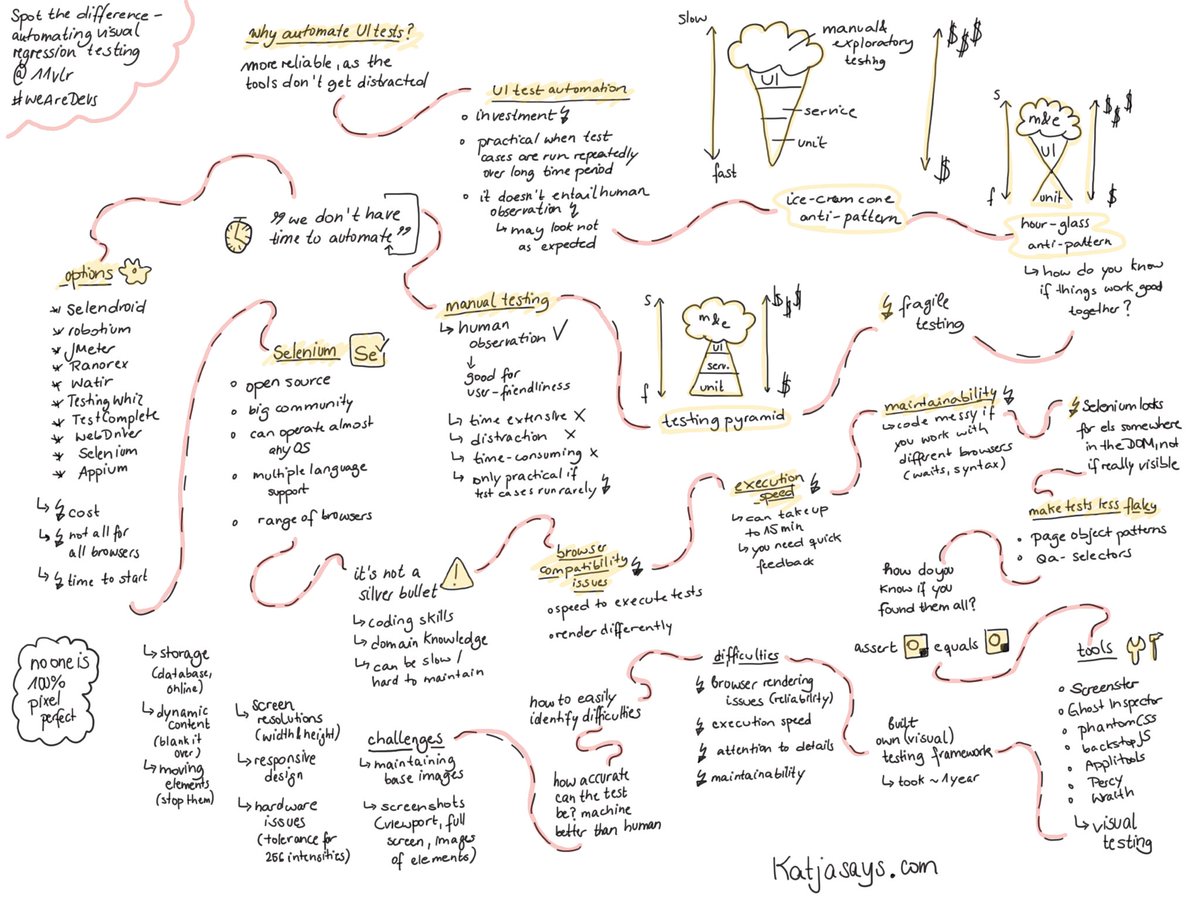 Spot the difference -
automating visual
regression testing
@ 11vlr
#weAreDevs
why automate UI tests?
more reliable, as the
tools don't get distracted
UI test automation
investment
practical when test
cases are run repeatedly
over long time period
it doesn't entail human
observation
may look not
as expected
slow
fast
UI
service
unit
manual &
exploratory
testing
$$$
$
ice-cream cone
anti-pattern
s
f
m&e
UI
unit
$$$
$
hour-glass
anti-pattern
how do you know
if things work good
together?
fragile
testing
s
f
m&e
UI
serv.
unit
$$$
$
testing pyramid
manual testing
human
observation ✓
good for
user-friendliness
time extensive x
distraction x
time-consuming x
only practical if
test cases run rarely
"we don't have
time to automate"
options
Selendroid
robotium
JMeter
Ranorex
Watir
Testing Whiz
TestComplete
WebDriver
Selenium
Appium
cost
not all for
all browsers
time to start
Selenium
Se
open source
big community
can operate almost
any OS
multiple language
support
range of browsers
it's not a
silver bullet
!
coding skills
domain knowledge
can be slow /
hard to maintain
browser
compatibility
issues
speed to execute tests
render differently
execution
speed
can take up
to 15 min
you need quick
feedback
maintainability
code messy if
you work with
different browsers
(waits, syntax)
Selenium looks
for els somewhere
in the DOM, not
if really visible
make tests less flaky
page object patterns
Qa-selectors
how do you
know if you
found them all?
assert
equals
tools
Screenster
Ghost Inspector
phantomCSS
backstopJS
Applitools
Percy
Wraith
visual
testing
built
own (visual)
testing framework
took ~1 year
difficulties
Browser rendering
issues (reliability)
execution speed
attention to details
maintainability
how to easily
identify difficulties
how accurate
can the test
be? machine
better than human
challenges
maintaining
base images
screenshots
(viewport, full
screen, images
of elements)
screen
resolutions
(width & height)
responsive
design
hardware
issues
(tolerance for
256 intensities)
storage
(database,
online)
dynamic
content
(blank it
over)
moving
elements
(stop them)
no one is
100%
pixel
perfect
Katjasays.com